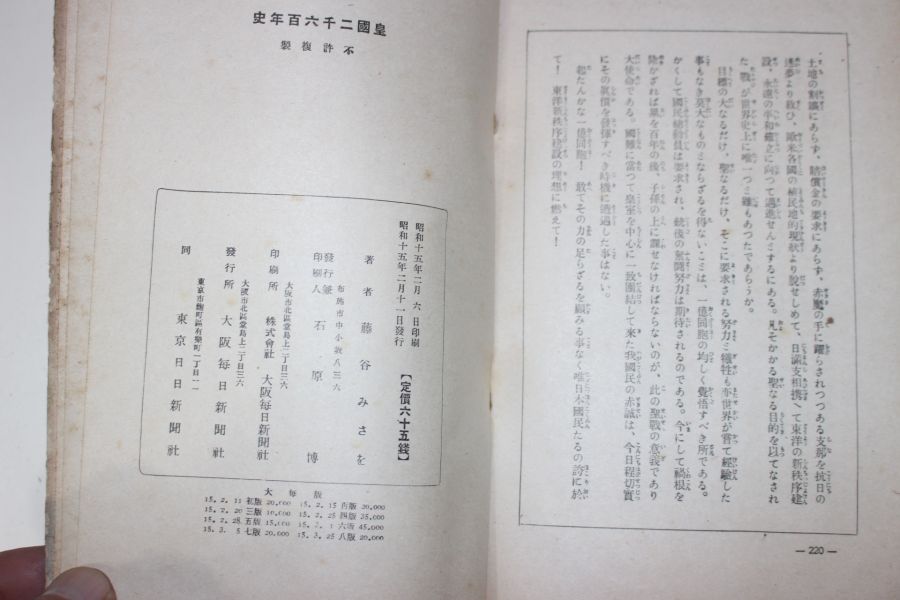 土地の割讓にあらず、賠償金の要求にあらず、赤魔の手に躍らされつつある支那を抗日の
迷夢より救ひ、歐米各國の植民地的現狀より脫せしめて、日滿支相携へて東洋の新秩序建
設、永遠の平和確立に向つて邁進せんとするにある。凡そかかる聖なる目的を以てなされ
た戰が世界史上に唯一つと雖もあつたであらうか。
目標の大なるだけ、聖なるだけ、そこに要求される努力と犧牲も亦世界が嘗て經驗した
事もなき莫大なものとならざるを得ないことは、一億同胞の均しく覺悟すべき所である。
かくして國民總動員は要求され、銃後の奮鬪努力は期待されるのである。今にして禍根を
除かざれば累を百年の後、子孫の上に課せなければならないのが、此の聖戰の意義であり
大使命である。國難に當つて皇室を中心に一致團結して來た我國民の赤誠は、今日程切實
にその眞價を發揮すべき時機に遭遇した事はない。
起たんかな一億同胞！ 敢てその力の足らざるを顧みる事なく唯日本國民たるの誇に於
て！ 東洋新秩序建設の理想に燃えて！
— 220 —
皇國二千六百年史
不許複製
昭和十五年二月 六 日印刷
昭和十五年二月十一日發行
【定價六十五錢】
著者 藤谷みさを
布施市中小阪八三六
發行兼印刷人 石原 博
大阪市北區堂島上二丁目三六
印刷所 株式會社 大阪每日新聞社
大阪市北區堂島上二丁目三六
發行所 大阪每日新聞社
東京市麴町區有樂町一丁目一一
同 東京日日新聞社
大每版
15. 2. 11 初版 20,000 15. 2. 15 再版 20,000
15. 2. 20 三版 10,000 15. 2. 25 四版 35,000
15. 2. 28 五版 15,000 15. 3. 1 六版 45,000
15. 3. 5 七版 20,000 15. 3. 25 八版 20,000